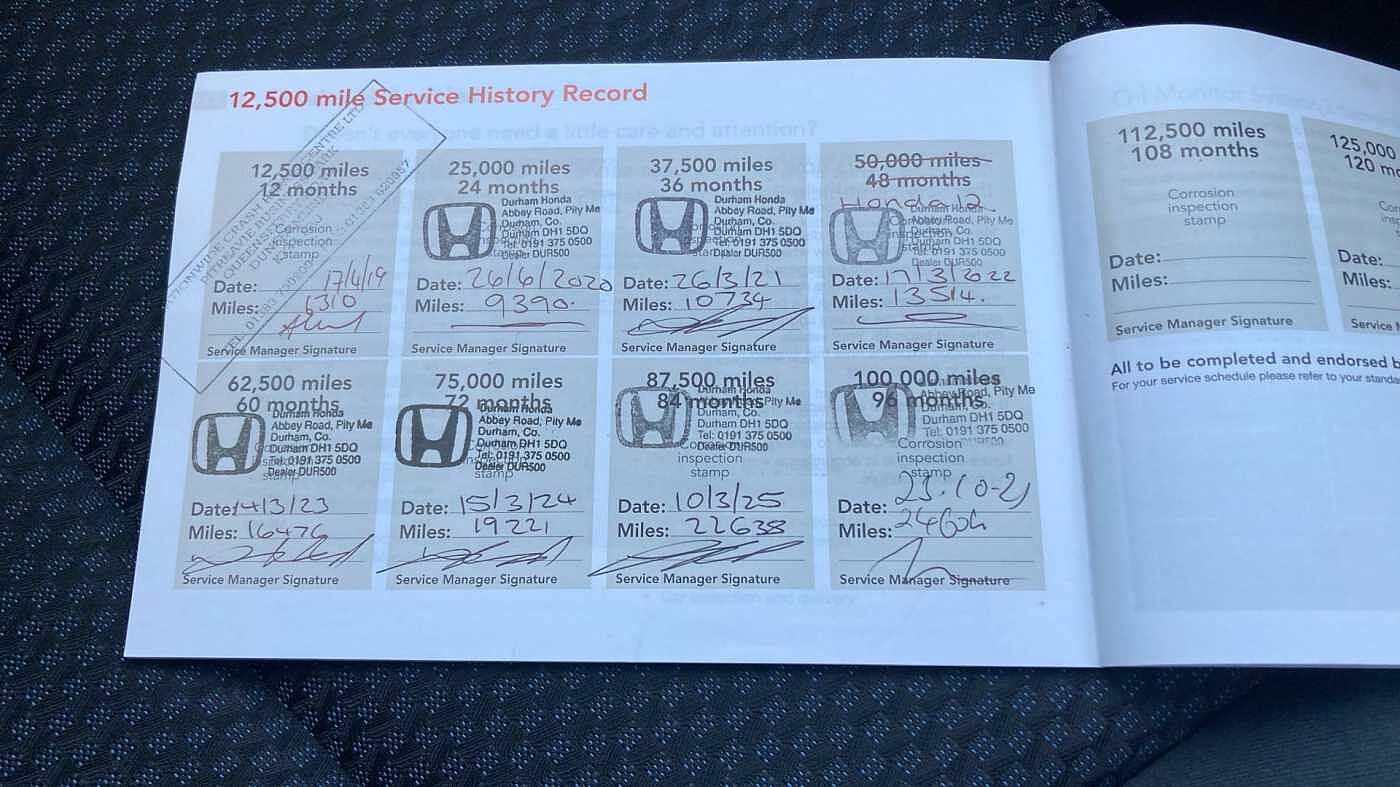 12,500 mile Service History Record
12,500 miles
12 months
Corrosion
inspection
stamp
Date: 17/4/19
Miles: 6310
Service Manager Signature
25,000 miles
24 months
Durham Honda
Abbey Road, Pity Me
Durham, Co.
Durham DH1 5DQ
Tel: 0191 375 0500
Dealer DUR500
Date: 26/6/2020
Miles: 9390.
Service Manager Signature
37,500 miles
36 months
Durham Honda
Abbey Road, Pity Me
Durham, Co.
Durham DH1 5DQ
Tel: 0191 375 0500
Dealer DUR500
Date: 26/3/21
Miles: 10734
Service Manager Signature
50,000 miles
48 months
Honda 12.
Durham Honda
Abbey Road, Pity Me
Durham, Co.
Durham DH1 5DQ
Tel: 0191 375 0500
Dealer DUR500
Date: 17/3/2022
Miles: 13514.
Service Manager Signature
62,500 miles
60 months
Durham Honda
Abbey Road, Pity Me
Durham, Co.
Durham DH1 5DQ
Tel: 0191 375 0500
Dealer DUR500
stamp
Date: 14/3/23
Miles: 16476
Service Manager Signature
75,000 miles
72 months
Durham Honda
Abbey Road, Pity Me
Durham, Co.
Durham DH1 5DQ
Tel: 0191 375 0500
Dealer DUR500
stamp
Date: 15/3/24
Miles: 19221
Service Manager Signature
87,500 miles
84 months
Abbey Road, Pity Me
Durham, Co.
Durham DH1 5DQ
Tel: 0191 375 0500
Dealer DUR500
Corrosion
inspection
stamp
Date: 10/3/25
Miles: 22638
Service Manager Signature
100,000 miles
96 months
Abbey Road, Pity Me
Durham, Co.
Durham DH1 5DQ
Tel: 0191 375 0500
Corrosion
inspection
stamp
Date:
Miles:
Service Manager Signature
112,500 miles
108 months
Corrosion
inspection
stamp
Date:
Miles:
Service Manager Signature
125,000
120 mo
Date:
Miles:
Service M
All to be completed and endorsed b
For your service schedule please refer to your standa